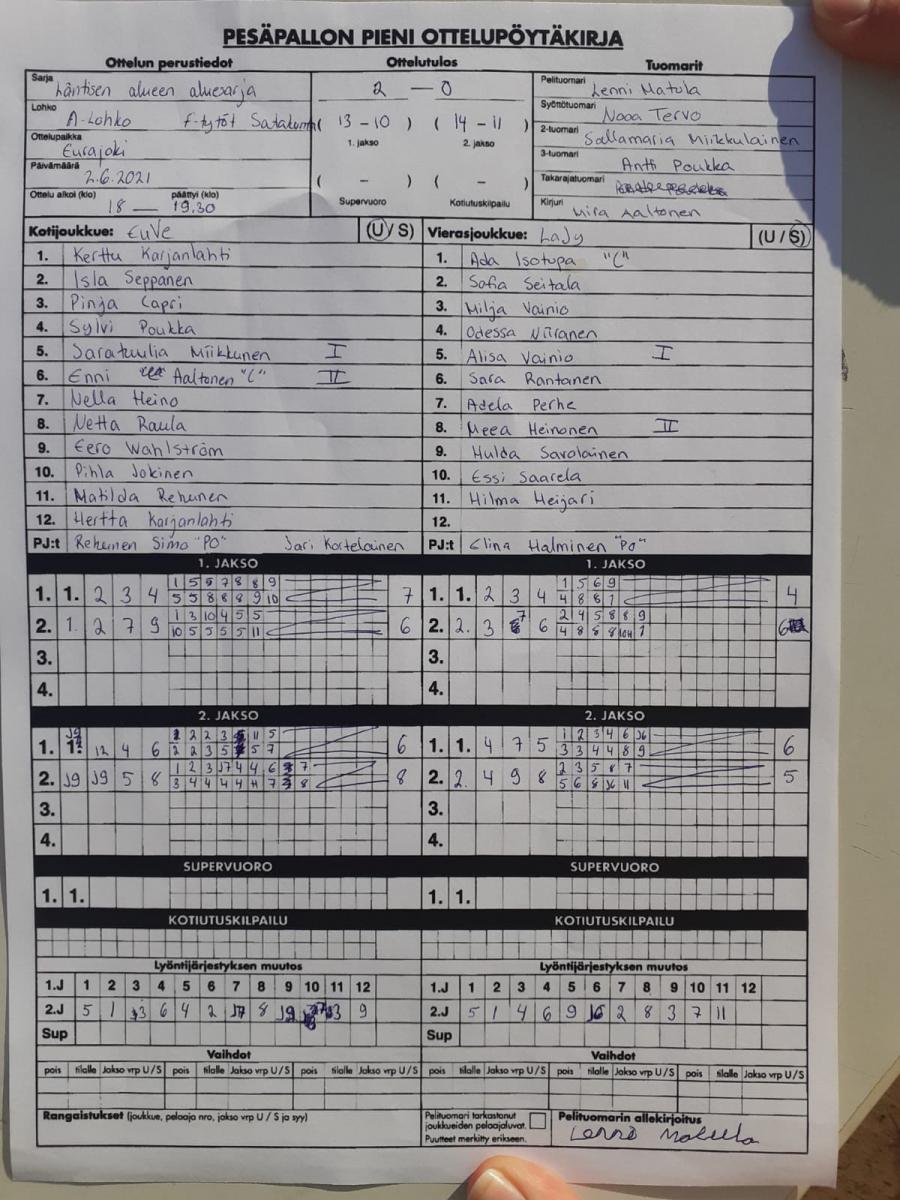 PESÄPALLON PIENI OTTELUPÖYTÄKIRJA
Ottelun perustiedot Ottelutulos Tuomarit
Sarja
Läntisen alueen aluesarja
Lohko
A-Lohko F-tytöt Satakunta
Ottelupaikka
Eurajoki
Päivämäärä
2.6.2021
Ottelu alkoi (klo) päättyi (klo)
18 — 19.30
2 — 0
( 13 - 10 ) ( 14 - 11 )
1. jakso 2. jakso
( - ) ( - )
Supervuoro Kotiutuskilpailu
Pelituomari Lenni Matula
Syöttötuomari Nooa Tervo
2-tuomari Sallamaria Miikkulainen
3-tuomari Antti Poukka
Takarajatuomari
Kirjuri Mira Aaltonen
Kotijoukkue: EuVe (U / S) Vierasjoukkue: LaJy (U / S)
1. Kerttu Karjanlahti
2. Isla Seppänen
3. Pinja Capri
4. Sylvi Poukka
5. Saratuulia Miikkunen I
6. Enni Aaltonen "C" II
7. Nella Heino
8. Netta Raula
9. Eero Wahlström
10. Pihla Jokinen
11. Matilda Rehunen
12. Hertta Karjanlahti
PJ:t Rehunen Simo "PO" Jari Kortelainen
1. Ada Isotupa "C"
2. Sofia Seitala
3. Milja Vainio
4. Odessa Niiranen
5. Alisa Vainio I
6. Sara Rantanen
7. Adela Perhe
8. Meea Heinonen II
9. Hulda Savolainen
10. Essi Saarela
11. Hilma Heijari
12.
PJ:t Elina Halminen "PO"
1. JAKSO 1. JAKSO
1. 1. 2 3 4 1 5 6 7 8 8 9 7
5 5 8 8 8 9 10
2. 1. 2 7 9 1 3 10 4 5 5 6
10 5 5 5 5 11
3.
4.
1. 1. 2 3 4 1 5 6 9 4
4 8 8 1
2. 2. 3 7 6 2 4 5 8 8 9 6
4 8 8 8 1
3.
4.
2. JAKSO 2. JAKSO
1. 1. 12 4 6 2 2 3 11 5 6
2 2 3 5 5 7
2. 19 19 5 8 1 2 3 17 4 4 6 7 8
3 4 4 4 4 11 7 8
3.
4.
1. 1. 4 7 5 1 2 3 4 6 6
3 3 4 4 8 9
2. 2. 4 9 8 2 3 5 8 7 5
5 6 8 11
3.
4.
SUPERVUORO SUPERVUORO
1. 1. 1. 1.
KOTIUTUSKILPAILU KOTIUTUSKILPAILU
Lyöntijärjestyksen muutos Lyöntijärjestyksen muutos
1.J 1 2 3 4 5 6 7 8 9 10 11 12 1.J 1 2 3 4 5 6 7 8 9 10 11 12
2.J 5 1 6 4 2 17 8 19 9 2.J 5 1 4 6 9 2 8 3 7 11
Sup Sup
Vaihdot Vaihdot
pois tilalle Jakso vrp U / S pois tilalle Jakso vrp U / S pois tilalle Jakso vrp U / S pois tilalle Jakso vrp U / S pois tilalle Jakso vrp U / S pois tilalle Jakso vrp U / S
Rangaistukset (joukkue, pelaaja nro, jakso vrp U / S ja syy)
Pelituomari tarkastanut
joukkueiden pelaajaluvat.
Puutteet merkitty erikseen.
Pelituomarin allekirjoitus
Lenni Matula